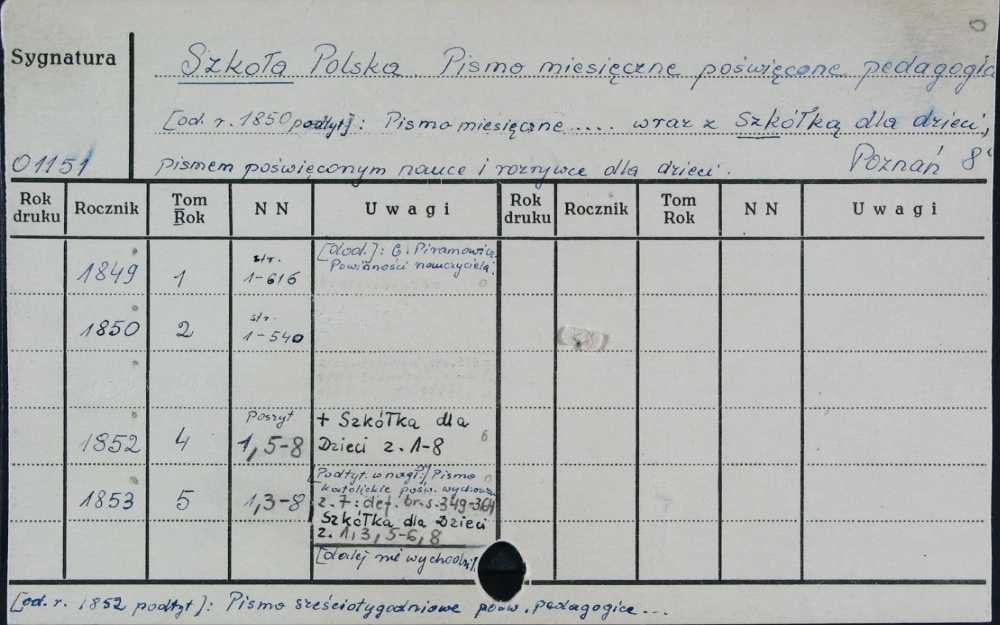 Sygnatura
Szkoła Polska. Pismo miesięczne poświęcone pedagogice
[od. r. 1850 podtyt]: Pismo miesięczne .... wraz z Szkółką dla dzieci,
01151 pismem poświęconym nauce i rozrywce dla dzieci. Poznań 8°
Rok druku Rocznik Tom Rok NN Uwagi Rok druku Rocznik Tom Rok NN Uwagi
1849 1 str. 1-616 [dod.]: G. Piramowicz. Powinności nauczyciela.
1850 2 str. 1-540
1852 4 Poszyt 1, 5-8 + Szkółka dla Dzieci z. 1-8
1853 5 1, 3-8 [Podtyt. w nagł.] Pismo
katolickie pośw. wychowan.
z. 7: def. br. s. 349-364
Szkółka dla Dzieci
z. 1, 3, 5-6, 8
[dalej nie wychodzi].
[od. r. 1852 podtyt]: Pismo sześciotygodniowe pośw. pedagogice ...